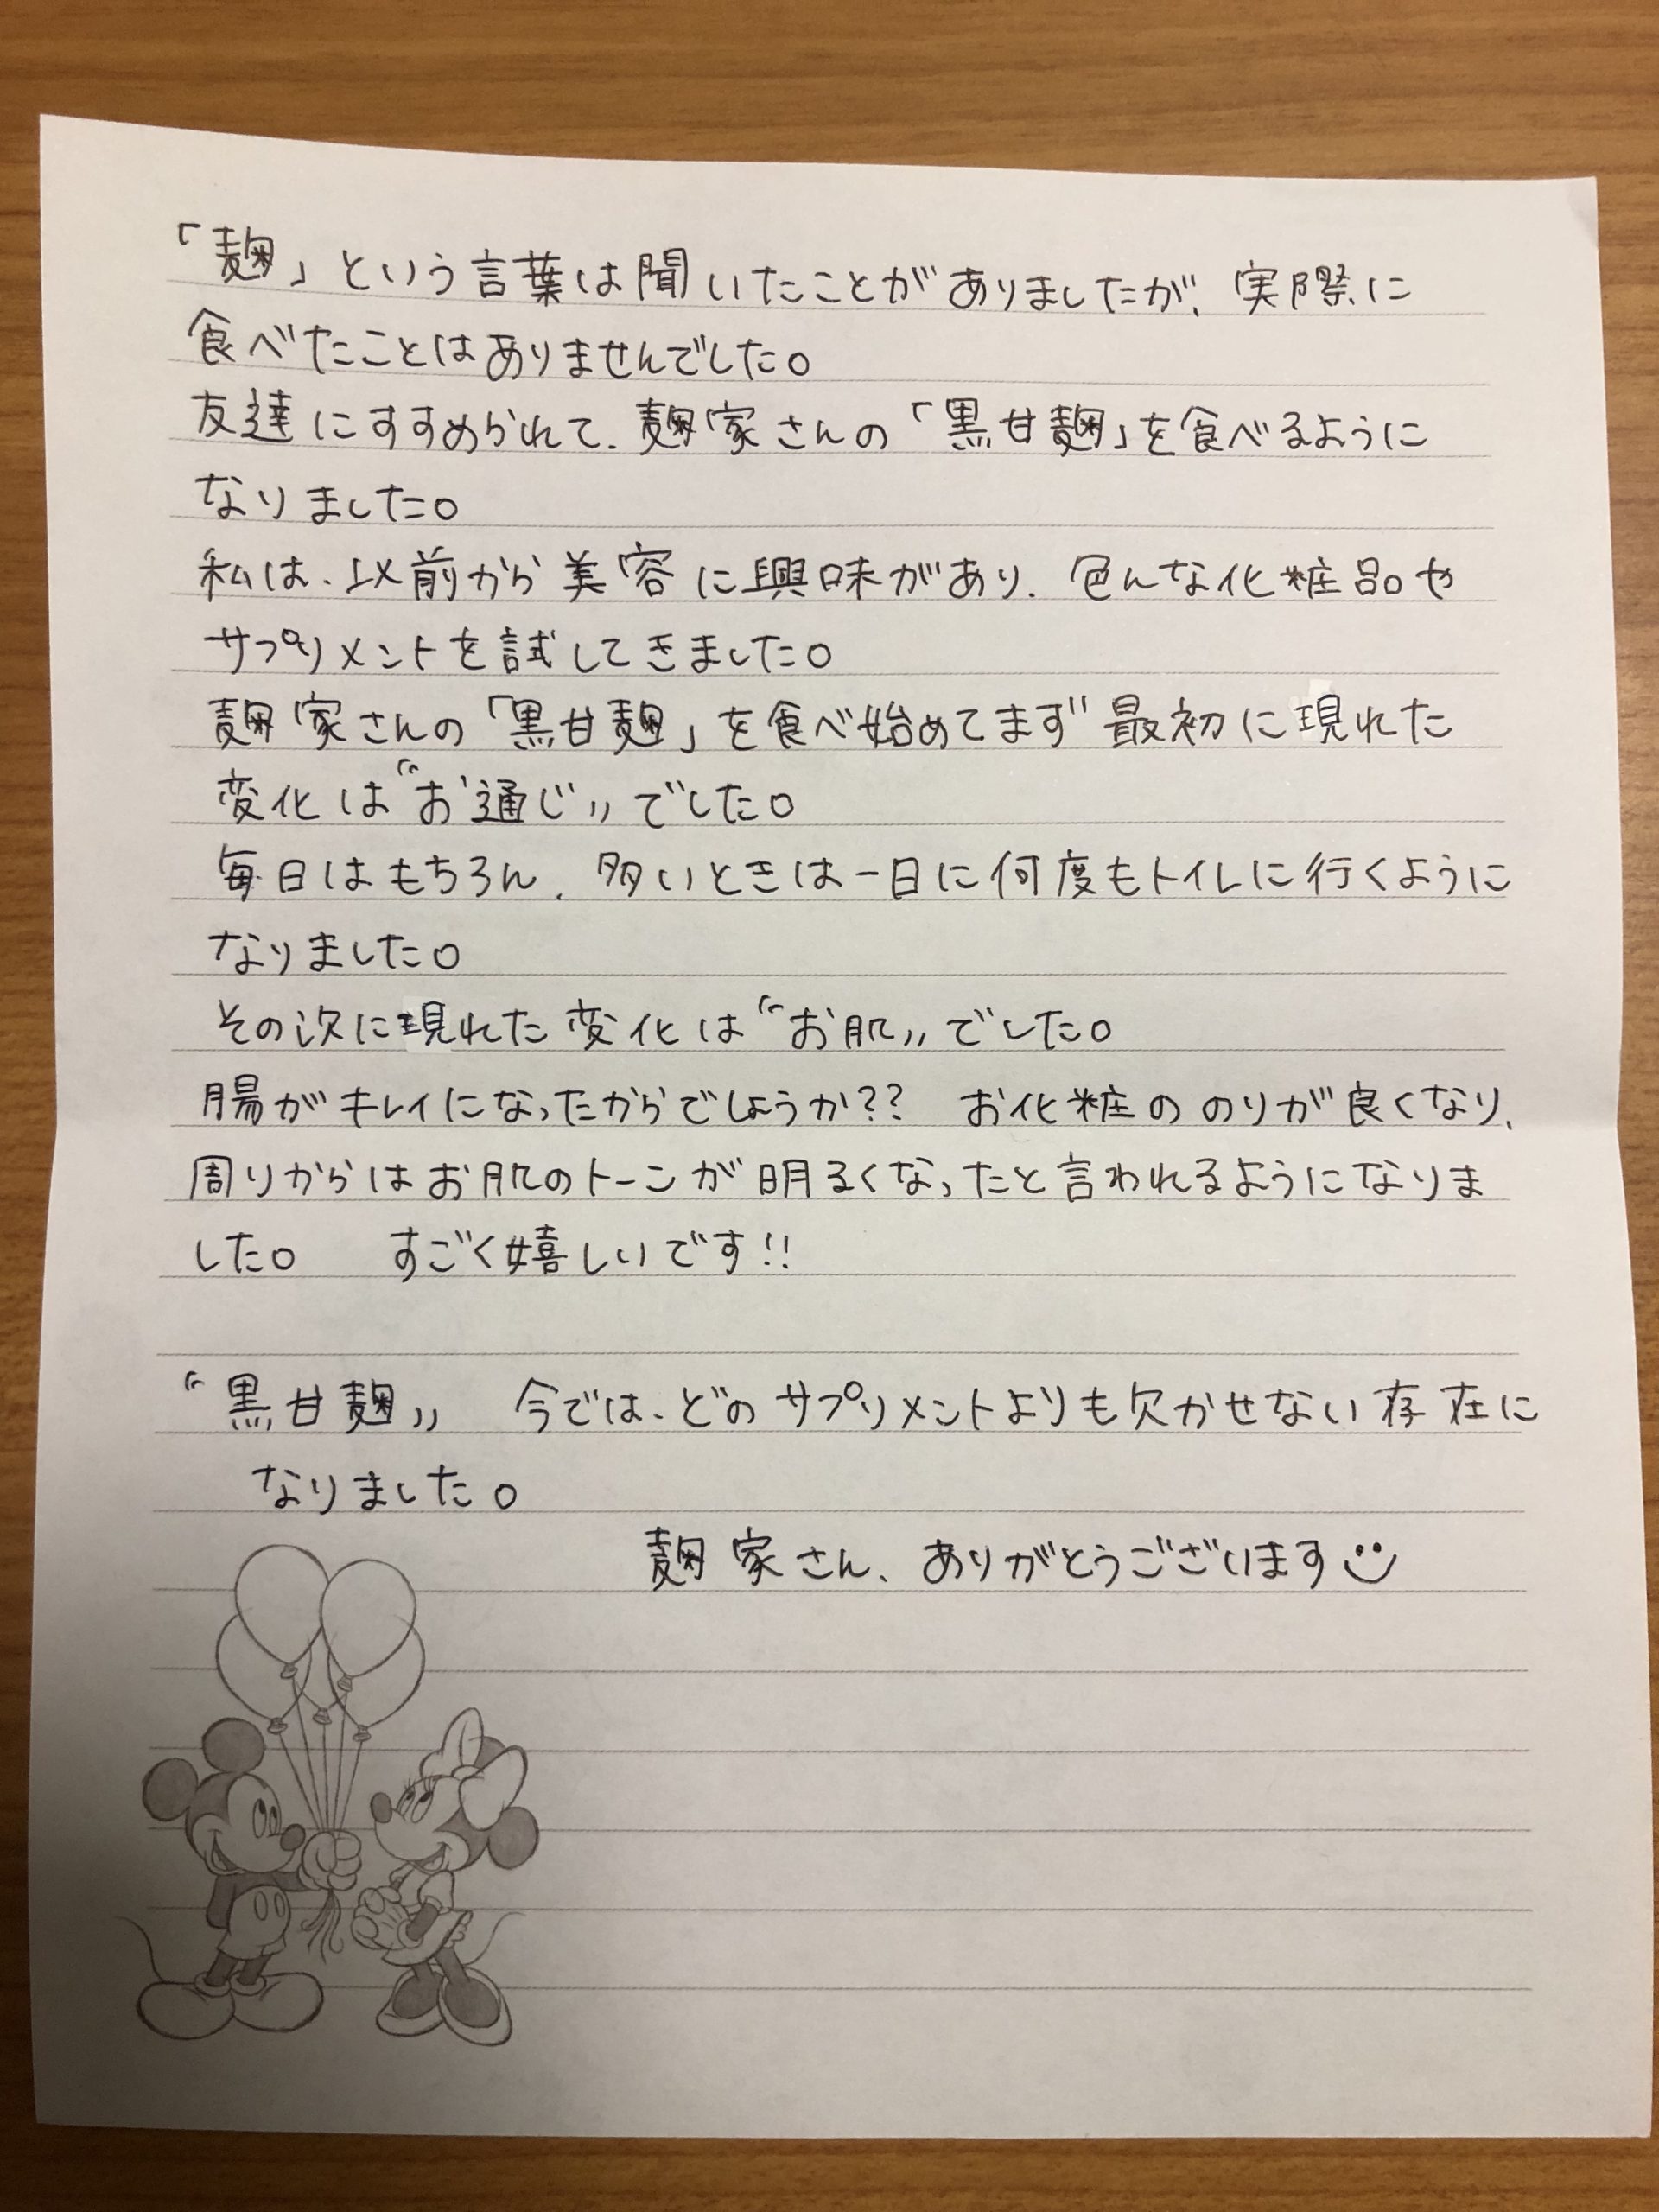 「麹」という言葉は聞いたことがありましたが、実際に
食べたことはありませんでした。
友達にすすめられて、麹家さんの「黒甘麹」を食べるように
なりました。
私は、以前から美容に興味があり、色んな化粧品や
サプリメントを試してきました。
麹家さんの「黒甘麹」を食べ始めてまず最初に現れた
変化は“お通じ〟でした。
毎日はもちろん、多いときは一日に何度もトイレに行くように
なりました。
その次に現れた変化は“お肌〟でした。
腸がキレイになったからでしょうか?? お化粧ののりが良くなり、
周りからはお肌のトーンが明るくなったと言われるようになりま
した。 すごく嬉しいです!!
“黒甘麹〟 今では、どのサプリメントよりも欠かせない存在に
なりました。
麹家さん、ありがとうございます